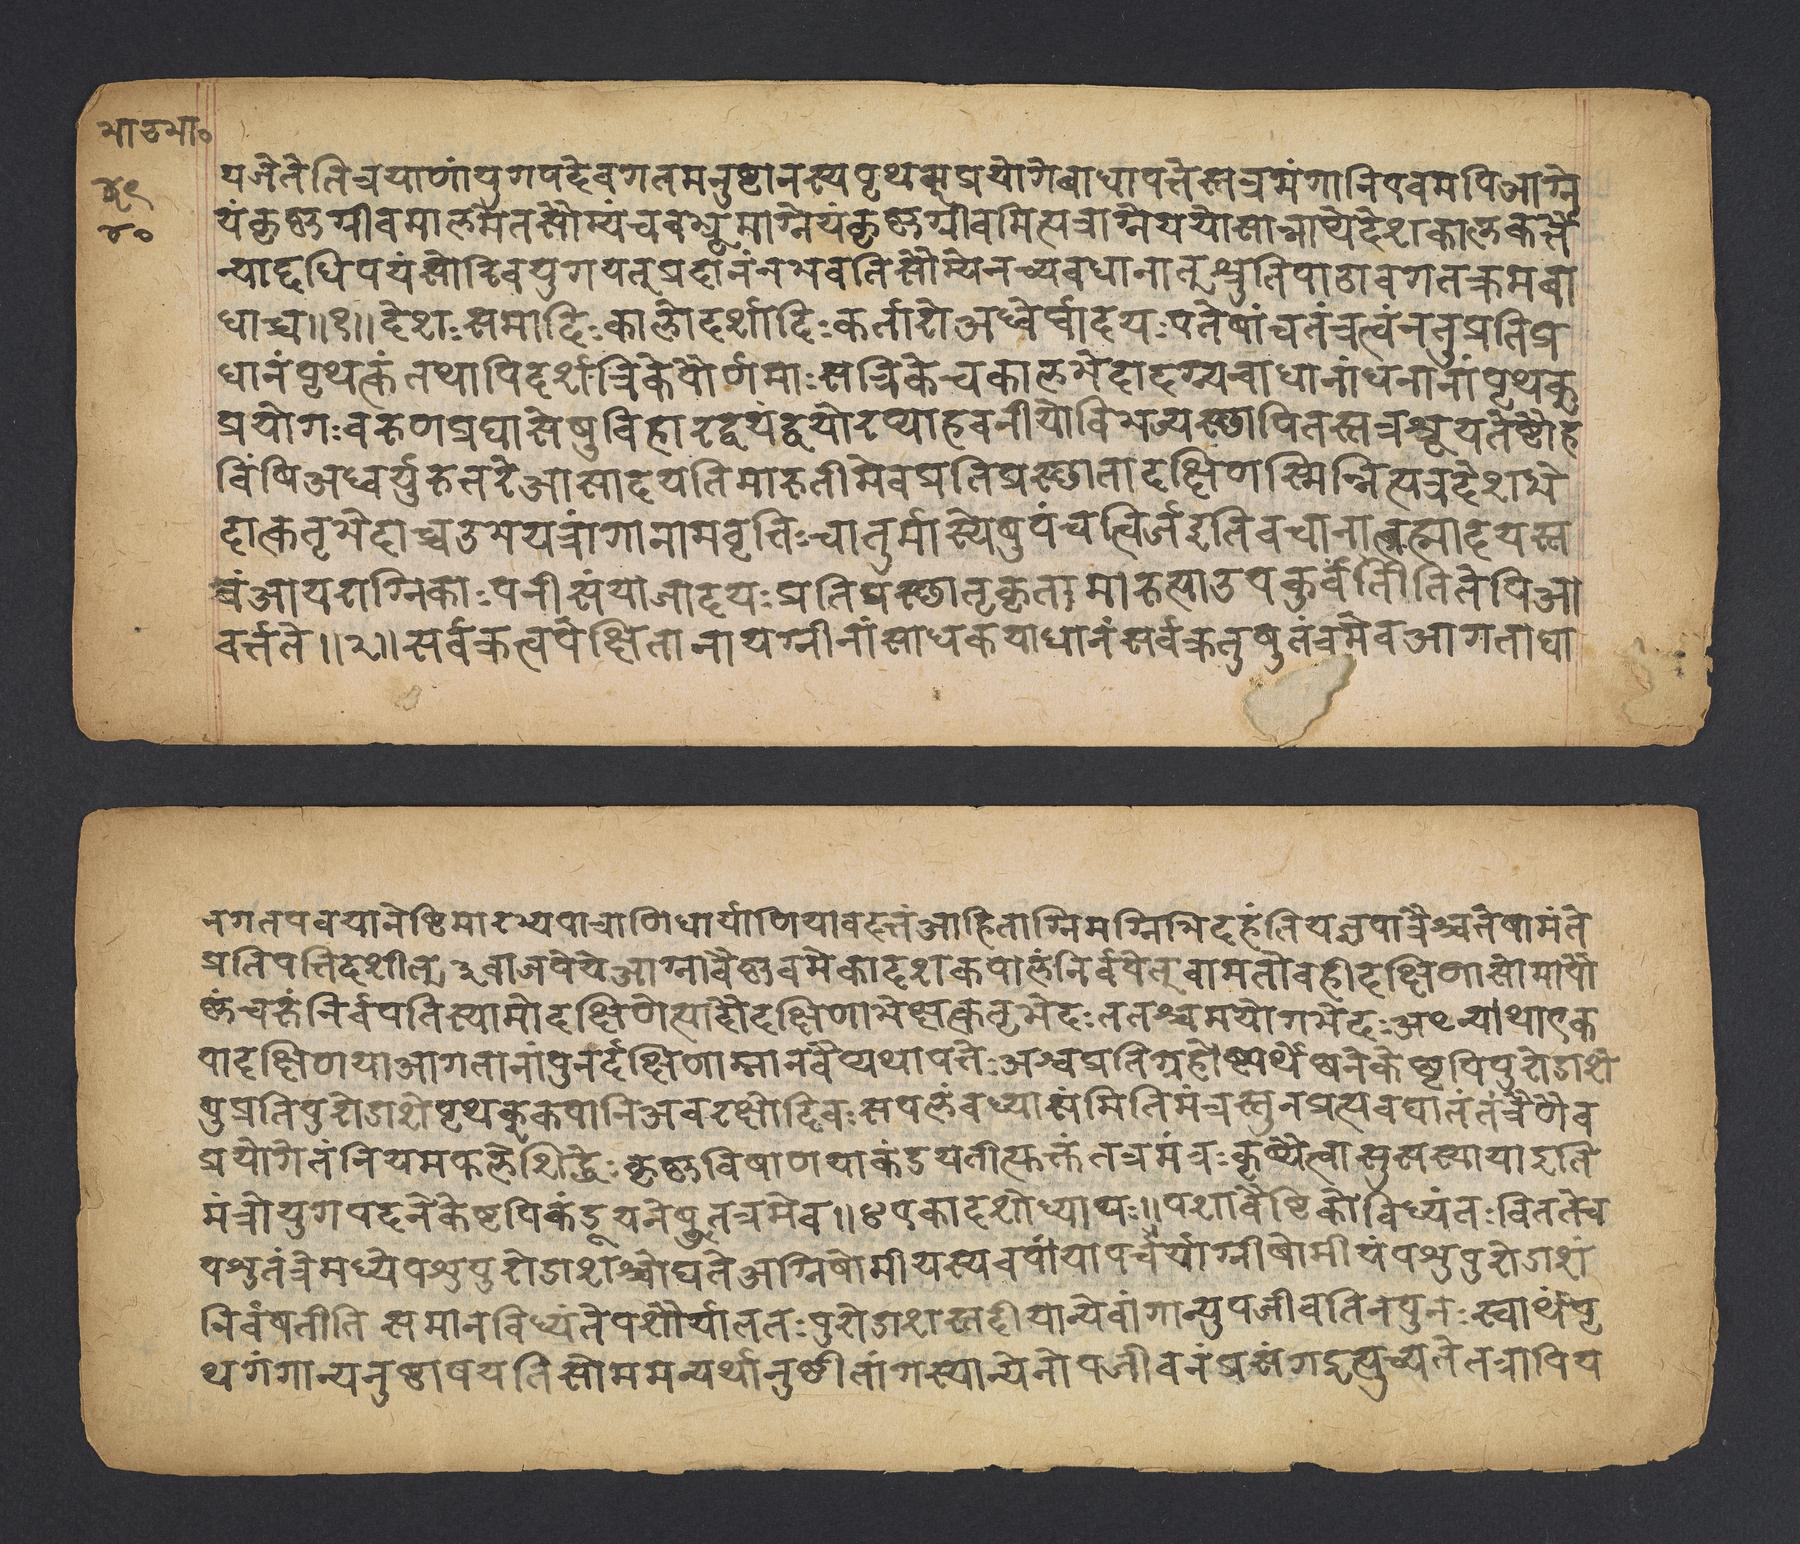 भाउभा०
४०
यजेतेतित्रयाणांयुगपदेवगतमनुष्टानस्यपृथक्प्रयोगेबाधापतेस्तत्रमंगानिएवमपिआग्ने
यंकृष्णग्रीवमालभेतसौम्यंचबभ्रूमाग्नेयंकृष्णग्रीवमित्यत्राग्नेययोसान्नाप्येदेशकालकर्त्रै
न्याद्दधिपयंसोरिवयुगयत्प्रहानंनभवतिसौम्येनव्यवधानात्श्रुतिपाठावगतक्रमबा
धाच्च॥१॥देशःसमादिःकालोदर्शादिःकर्तारोअध्वेर्वादयःएतेषांचतंत्रत्वंनतुप्रतिप्र
धानंपृथत्कंतथापिदर्शत्रिकेपौर्णमाःसत्रिकेचकालभेदादग्न्यवाधानांधनानांपृथक्
प्रयोगःवरुणप्रघासेषुविहारद्वयंद्वयोरप्याहवनीयोविभज्यस्छापितस्तत्रश्रूयतेष्टौह
विंषिअध्वर्युरुतरेआसादयतिमारुतीमेवप्रतिप्रस्छातादक्षिणस्मिन्नित्यत्रदेशभे
दात्कतृभेदाच्चउभयत्रांगानामवृत्तिःचातुर्मास्येषुपंचर्त्विजइतिवचानात्ब्रह्मादयस्त
त्रंआयराग्निकाःपनीसंयाजादयःप्रतिप्रस्छातृकृतामारुत्याउपकुर्वंतीतितेपिआ
वर्त्तते॥२॥सर्वक्रत्वपेक्षितानायग्नीनांसाधकयाधानंसर्वक्रतुषुतंत्रमेवआगताधा
नगतपवयानेष्टिमारभ्यपात्राणिधार्याणियावदत्तंआहिताग्निमग्निभिदहंतियज्ञपात्रैश्चतेषामंते
प्रतिपत्तिदर्शीत्३वाजपेयेआग्नावैष्णवमेकादशकपालंनिर्वपेत्वामतौवहीदक्षिणासोमापौ
ष्णंचरुंनिर्वपतिस्यामोदक्षिणेत्यादौदक्षिणाभेदात्कतृभेदःततश्चमयोगभेदःअन्याथाएक
पादक्षिणयाआगतानांपुनर्दक्षिणाम्नानवैप्यथापत्तेःअश्वप्रतिग्रहोष्ट्यर्थेष्वनेकेष्वपिपुरोडाशे
षुप्रतिपुरोडाशेपृथक्कपानिअवरक्षोदिवःसपत्नंवध्यासंमितिमंत्रस्तुनप्रत्यवघातंतंत्रेणैव
प्रयोगेतंनियमफलैशिद्धेःकृष्णविषाणयाकंडयतीत्युक्तंतत्रमंत्रःकृष्यैत्वासुसस्यायाइति
मंत्रोयुगपदनेकेष्टपिकंडूयनेषुतत्रमेव॥४एकादशोध्यायः॥पशावैष्टिकोविध्यंतःविततेच
पशुतंत्रेमध्येपशुपुरोडाशश्चोद्यतेअग्निषोमीयस्यवपांयापर्चर्याग्नीषोमीयंपशुपुरोडाशं
निर्वंषतीति समानविध्यंतेपशौर्यालतःपुरोडाशस्तदीयान्येवांगान्युपजीवतिनपुनःस्वार्थंपृ
थगंगान्यनुष्ठाषयतिसोममन्यर्थानुष्ठीतांगस्यान्येनोपजीवनंप्रसंगइत्युच्यतेतत्रापिय